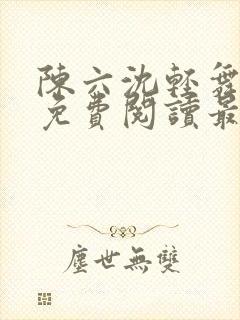 陳六沈輕舞
免費閱讀最
塵世無雙